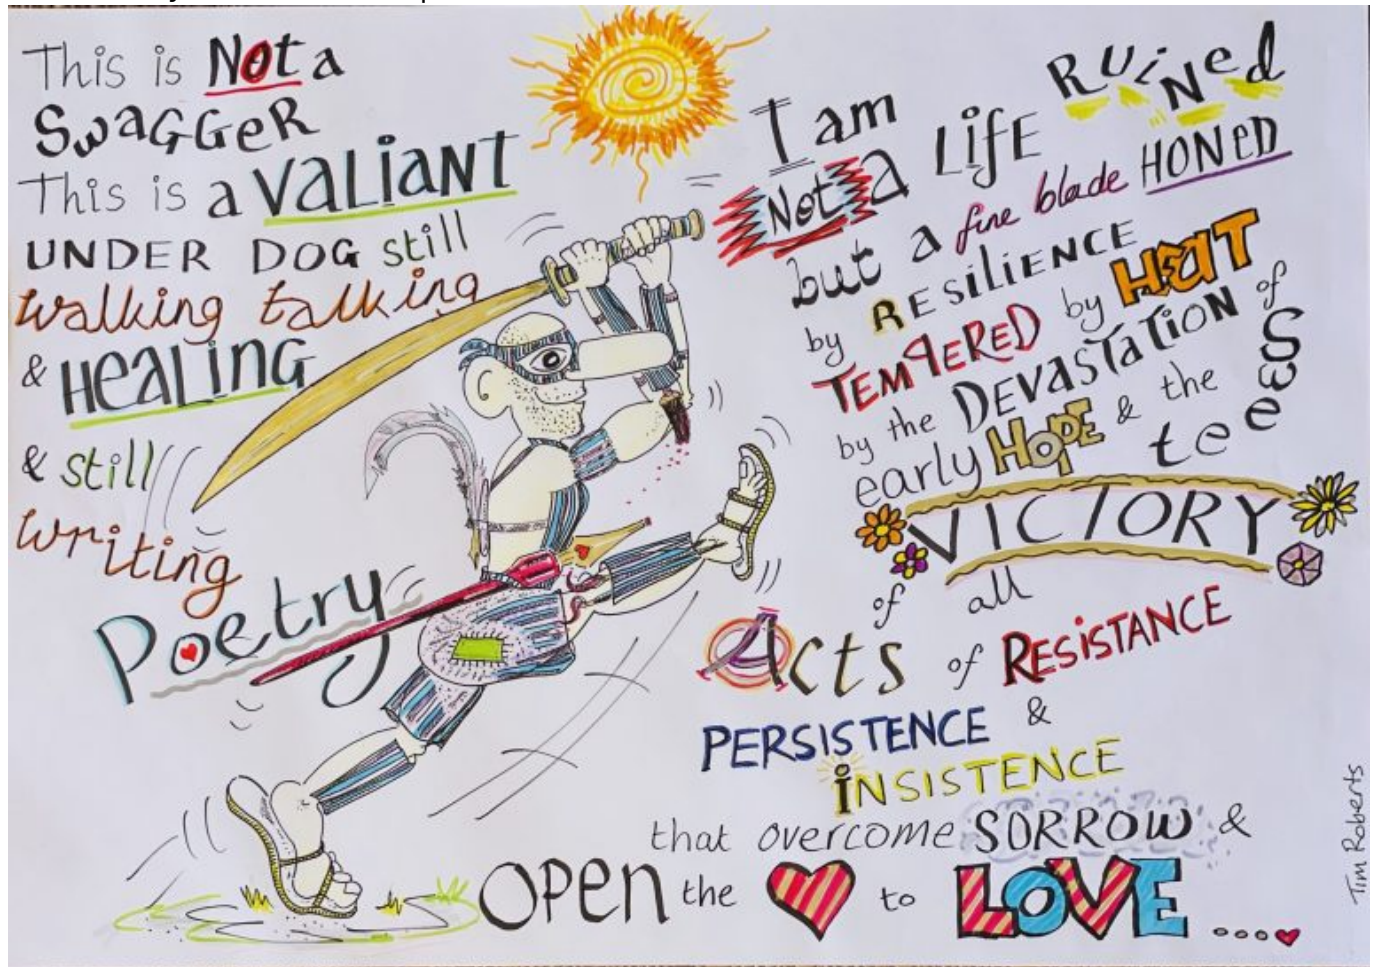 This is Not a
SWaGGeR
This is a VaLiaNT
UNDER DOG still
walking talking
& HeaLiNG
& still
writing
Poetry
I am
Not a LifE RUiNed
but a fine blade HONED
by RESiliENCE
TEMPERED by HEAT
by the DEVASTaTiON of
early HOPE & the Sweet
VICTORY
of all
Acts of RESiSTANCE
PERSISTENCE &
iNSISTENCE
that overcome SORROW &
OPEN the ❤ to LOVE ....
Tim Roberts